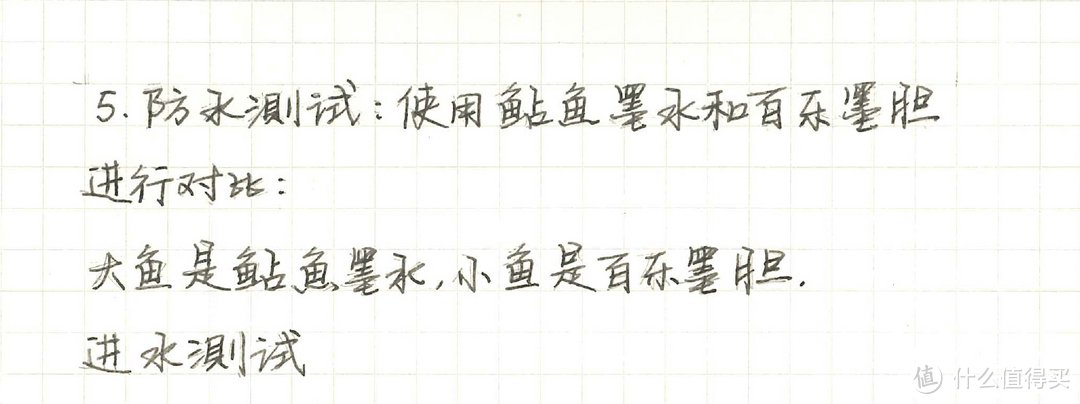 5.防水测试:使用鲇鱼墨水和百乐墨胆
进行对比:
大鱼是鲇鱼墨水,小鱼是百乐墨胆.
进水测试
值 什么值得买